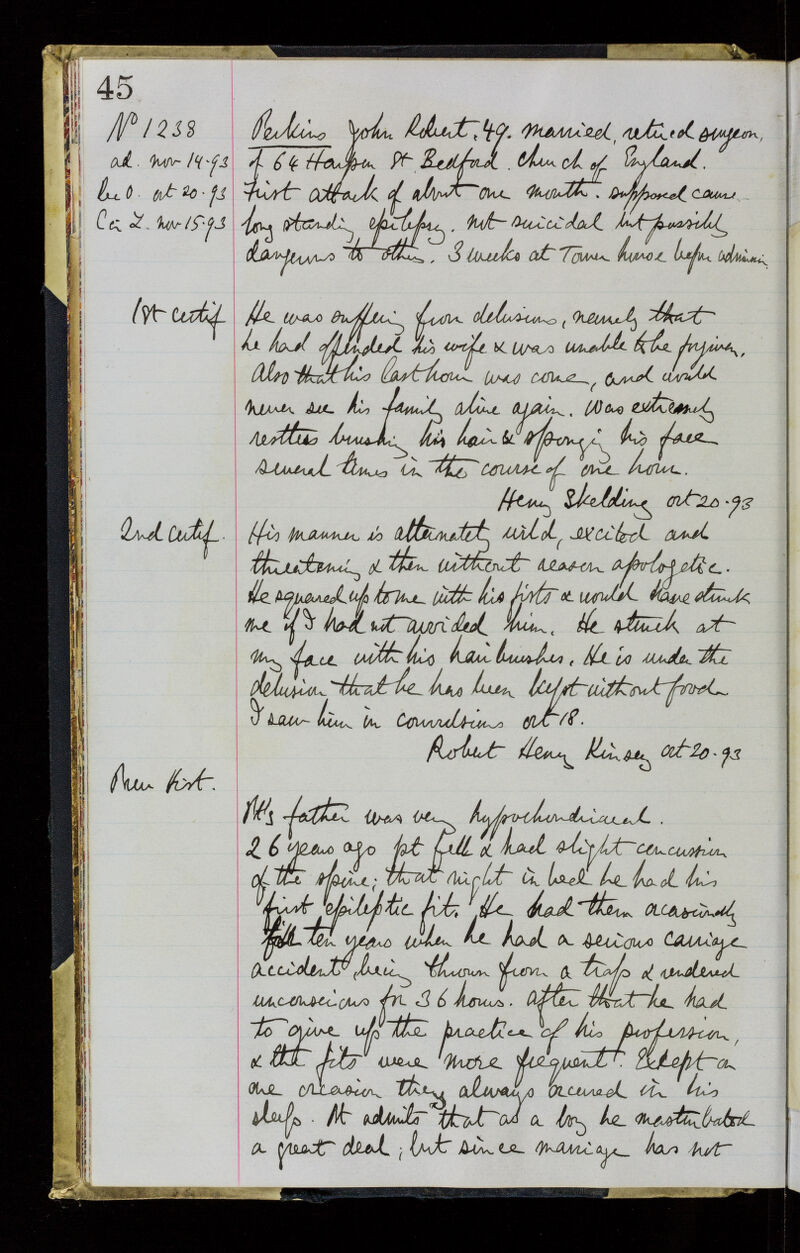 45
No 1238
Perkins John Robert, 49. married, retired surgeon,
ad. Nov 14.93
of 64 St Bedford. Church of England.
oct 20.93
First attack of about one month. supposed cause
Nov 15.93
long standing epilepsy. not suicidal but possibly
dangerous to others. 3 weeks at Tower house before admission
1st Certif
He was suffering from delusions, namely that
he had offended his wife & was unable to be forgiven.
Also that his last hour was come, and would
never see his family alive again. Was extremely
restless brushing his hair & sponging his face
several times in the course of one hour.
Henry Skelding oct 20.93
2nd Certif.
His manner is alternately wild, excited and
threatening & then without reason apologetic.
He squared up to me with his fists & would have struck
me if I had not avoided him. He struck at
my face with his hair brushes. He is under the
delusion that he has been kept without food
I saw him in convulsions oct 18.
Robert Henry Kinsey oct 20.93
Prev Hist.
Pt's father was very hypochondriacal.
26 years ago pt fell & had slight concussion
of the spine; that night in bed he had his
first epileptic fit. He had them occasionally
till ten years when he had a serious carriage
accident, being thrown from a trap & rendered
unconscious for 36 hours. After that he had
to give up the practice of his profession,
& the fits were more frequent. Except on
one occasion they always occured in his
sleep. Pt admits that as a boy he masturbated
a great deal; but since marriage has not